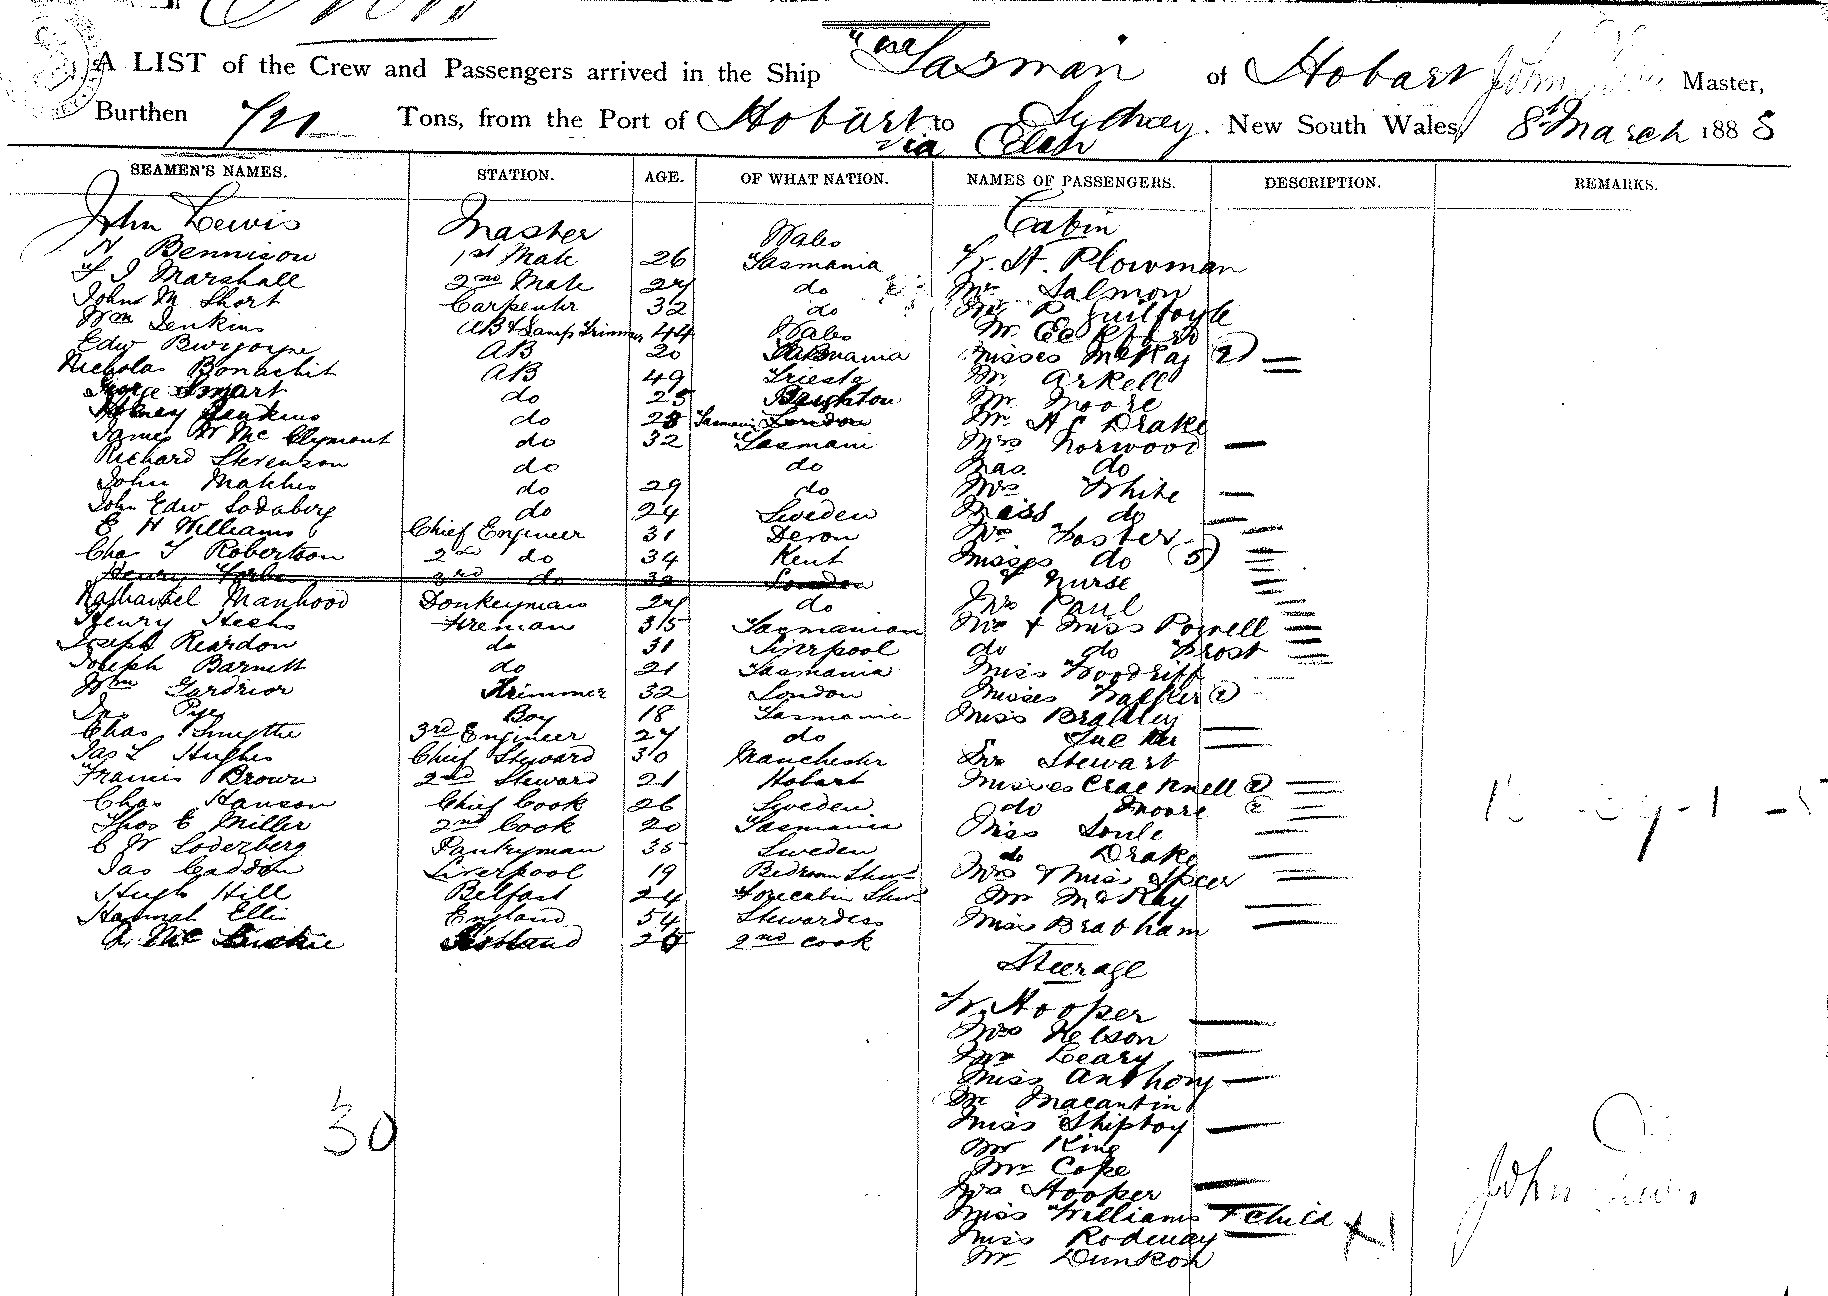 A LIST of the Crew and Passengers arrived in the Ship "Tasman" of Hobart John Lewis Master,
Burthen Tons, from the Port of Hobart to Sydney. New South Wales, 8th March 1888
via Eden
SEAMEN'S NAMES. STATION. AGE. OF WHAT NATION. NAMES OF PASSENGERS. DESCRIPTION. REMARKS.
John Lewis Master Wales Cabin
Bennison 1st Mate 26 Tasmania Mr. H. Plowman
Marshall 2nd Mate 27 do Mr Salmon
John M Short Carpenter 32 do Mr Guilfoyle
Wm Jenkins AB & Lamp Trimmer 44 Wales Mr.
Edw AB 20 Tasmania Misses McKay (2)
Nicholas AB 49 Trieste Mr. Arkell
George Smart do 25 Brighton Mr Moore
Jenkins do 28 Tasmania London Mr. H C Drake
James W McClymont do 32 Tasmani Mrs Norwood
Richard Stevenson do do Mas do
John do 29 do Mrs White
John Edw do 24 Sweden Miss do
E H Williams Chief Engineer 31 Devon Mrs Foster
Chas Robertson 2nd do 34 Kent Misses do (5)
Henry 3rd do London & Nurse
Nathaniel Manhood Donkeyman 27 do Mrs Paul
Henry Fireman 35 Tasmanian & Miss Powell
Joseph Reardon do 31 Liverpool do do Frost
Joseph Barnett do 21 Tasmania Miss Woodriff
Wm Trimmer 32 London Misses Walker (2)
Pye Boy 18 Tasmania Miss
Chas Smythe 3rd Engineer 27 do
Jas L Hughes Chief Steward 30 Manchester Mrs Stewart
Francis Brown 2nd Steward 21 Hobart Misses Cracknell (2)
Chas Hanson Chief Cook 26 Sweden do Moore (2)
Thos E Miller 2nd Cook 20 Tasmania Miss Soule
C W Soderberg Pantryman 35 Sweden do Drake
Jas Liverpool 19 Bedroom Stewd Mrs & Miss Speer
Hugh Hill Belfast 24 Forecabin Stewd Mr McKay
Hannah Ellis England 54 Stewardess Miss Brabham
Mc Scotland 2nd Cook
Steerage
Mr. Hooper
Mrs Nelson
Leary
Miss Anthony
Mr Macantin
Miss Shiptoy
30
Mr King
Mr Cope
Mrs Hooper
John Lewis
Miss Williams & child
Miss Rodway
Mr Dunkon